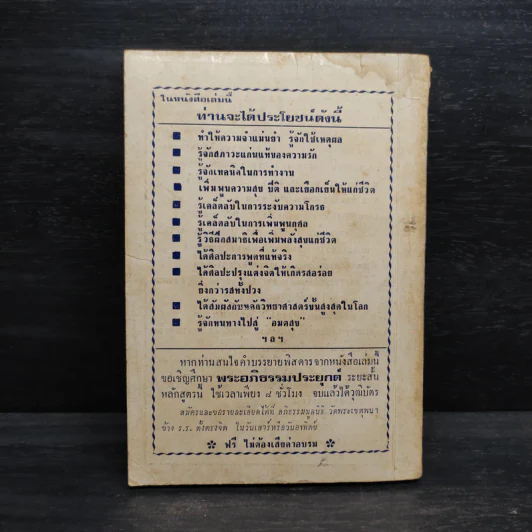 ในหนังสือเล่มนี้
ท่านจะได้ประโยชน์ดังนี้
ทำให้ความจำแม่นยำ รู้จักใช้เหตุผล
รู้จักสภาวะแก่นแท้ของความรัก
รู้จักเทคนิคในการทำงาน
เพิ่มพูนความสุข ปีติ และเยือกเย็นให้แก่ชีวิต
รู้เคล็ดลับในการระงับความโกรธ
รู้เคล็ดลับในการเพิ่มพูนกุศล
รู้วิธีฝึกสมาธิเพื่อเพิ่มพลังสุขแก่ชีวิต
ได้ศิลปะการพูดที่แท้จริง
ได้ศิลปะปรุงแต่งจิตให้เกิดรสอร่อย
ยิ่งกว่ารสทั้งปวง
ได้สัมผัสกับหลักวิทยาศาสตร์ชั้นสูงสุดในโลก
รู้จักหนทางไปสู่ "อมตสุข"
ฯลฯ
หากท่านสนใจคำบรรยายพิสดารจากหนังสือเล่มนี้
ขอเชิญศึกษา พระอภิธรรมประยุกต์ ระยะสั้น
หลักสูตรนี้ ใช้เวลาเพียง ๘ ชั่วโมง จบแล้วได้วุฒิบัตร
สมัครและขอรายละเอียดได้ที่ อภิธรรมมูลนิธิ วัดพระเชตุพนฯ
ข้าง ร.ร. ตั้งตรงจิต ในวันเสาร์หรือวันอาทิตย์
ฟรี ไม่ต้องเสียค่าอบรม